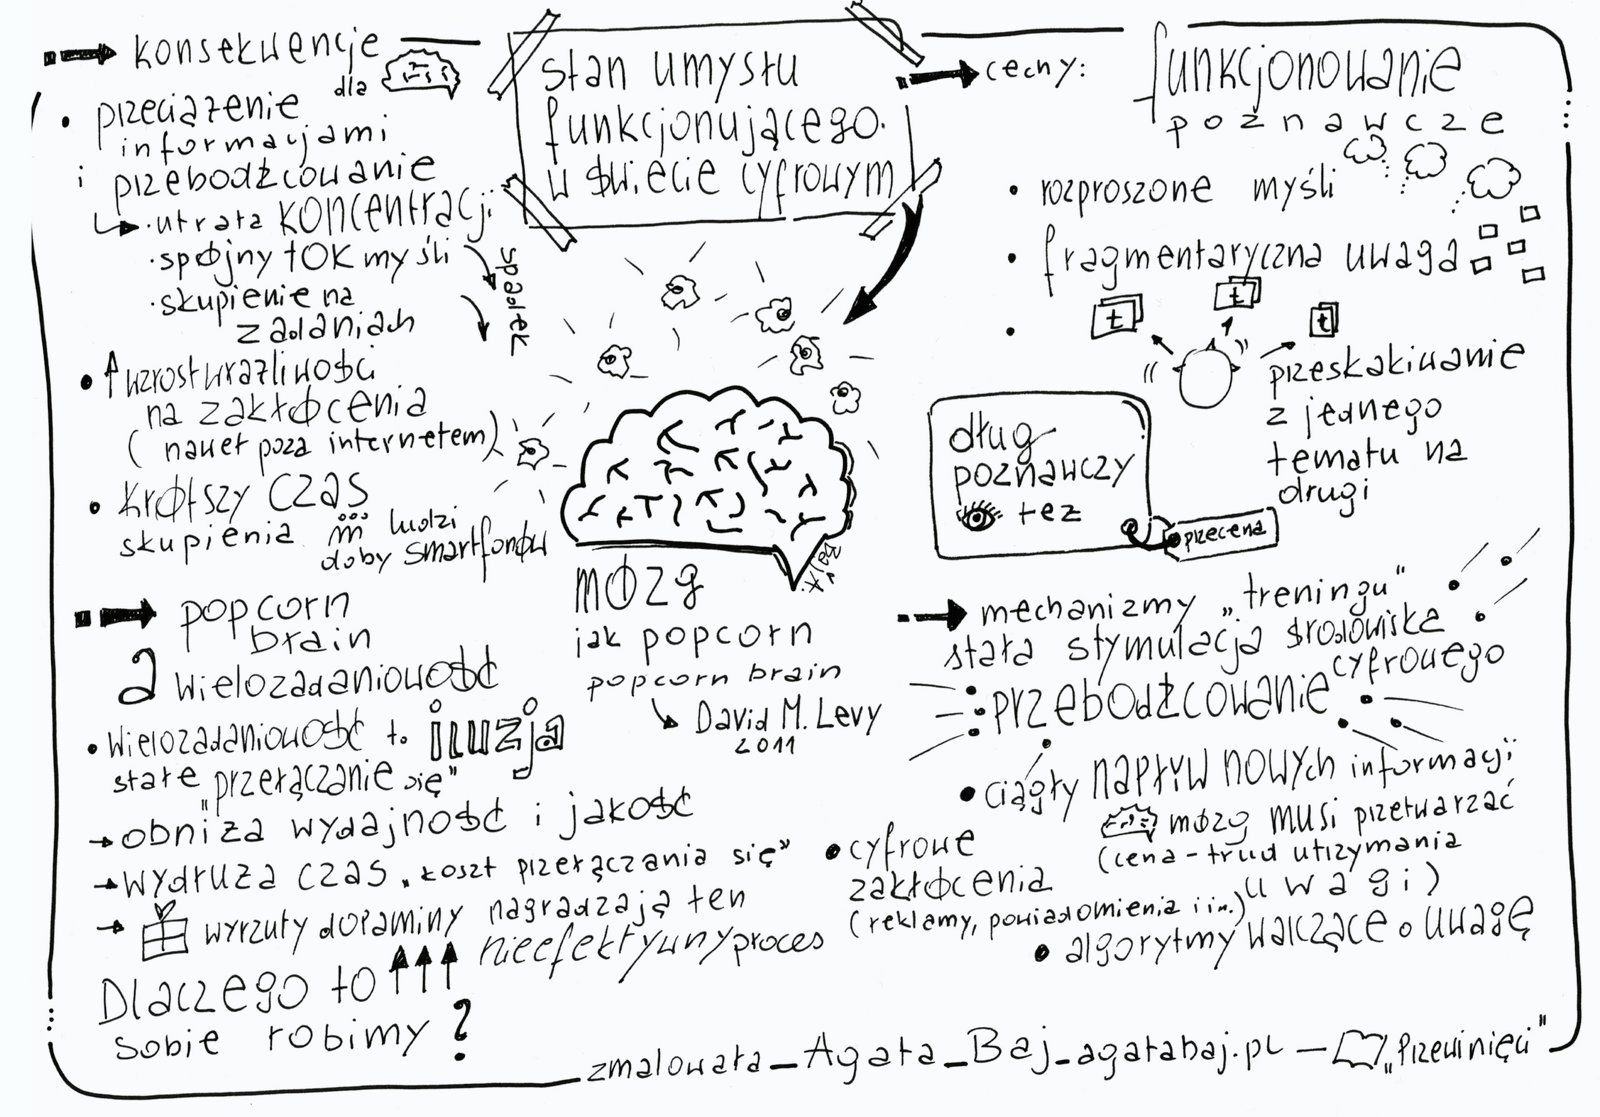 konsekwencje
dla
• przeciążenie
informacjami
i przebodźcowanie
• utrata koncentracji
• spójny tok myśli
• skupienie na
zadaniach
spadek
• wzrost wrażliwości
na zakłócenia
(nawet poza internetem)
• krótszy czas
skupienia ludzi
doby smartfonów
stan umysłu
funkcjonującego
w świecie cyfrowym
cechy:
funkcjonowanie
poznawcze
• rozproszone myśli
• fragmentaryczna uwaga
t t t
• przeskakiwanie
z jednego
tematu na
drugi
dług
poznawczy
też
przecena
mózg
jak popcorn
popcorn brain
David M. Levy
2011
popcorn
brain
a wielozadaniowość
• wielozadaniowość to iluzja
stałe "przełączanie się"
→ obniża wydajność i jakość
→ wydłuża czas „koszt przełączania się"
→ wyrzuty dopaminy nagradzają ten
nieefektywny proces
Dlaczego to
sobie robimy?
mechanizmy „treningu"
stała stymulacja środowiska
cyfrowego
przebodźcowanie
• ciągły napływ nowych informacji
mózg musi przetwarzać
(cena - trud utrzymania
uwagi)
• cyfrowe
zakłócenia
(reklamy, powiadomienia i in.)
• algorytmy walczące o uwagę
zmalowała_Agata_Baj_agatabaj.pl — „Przewinięci"